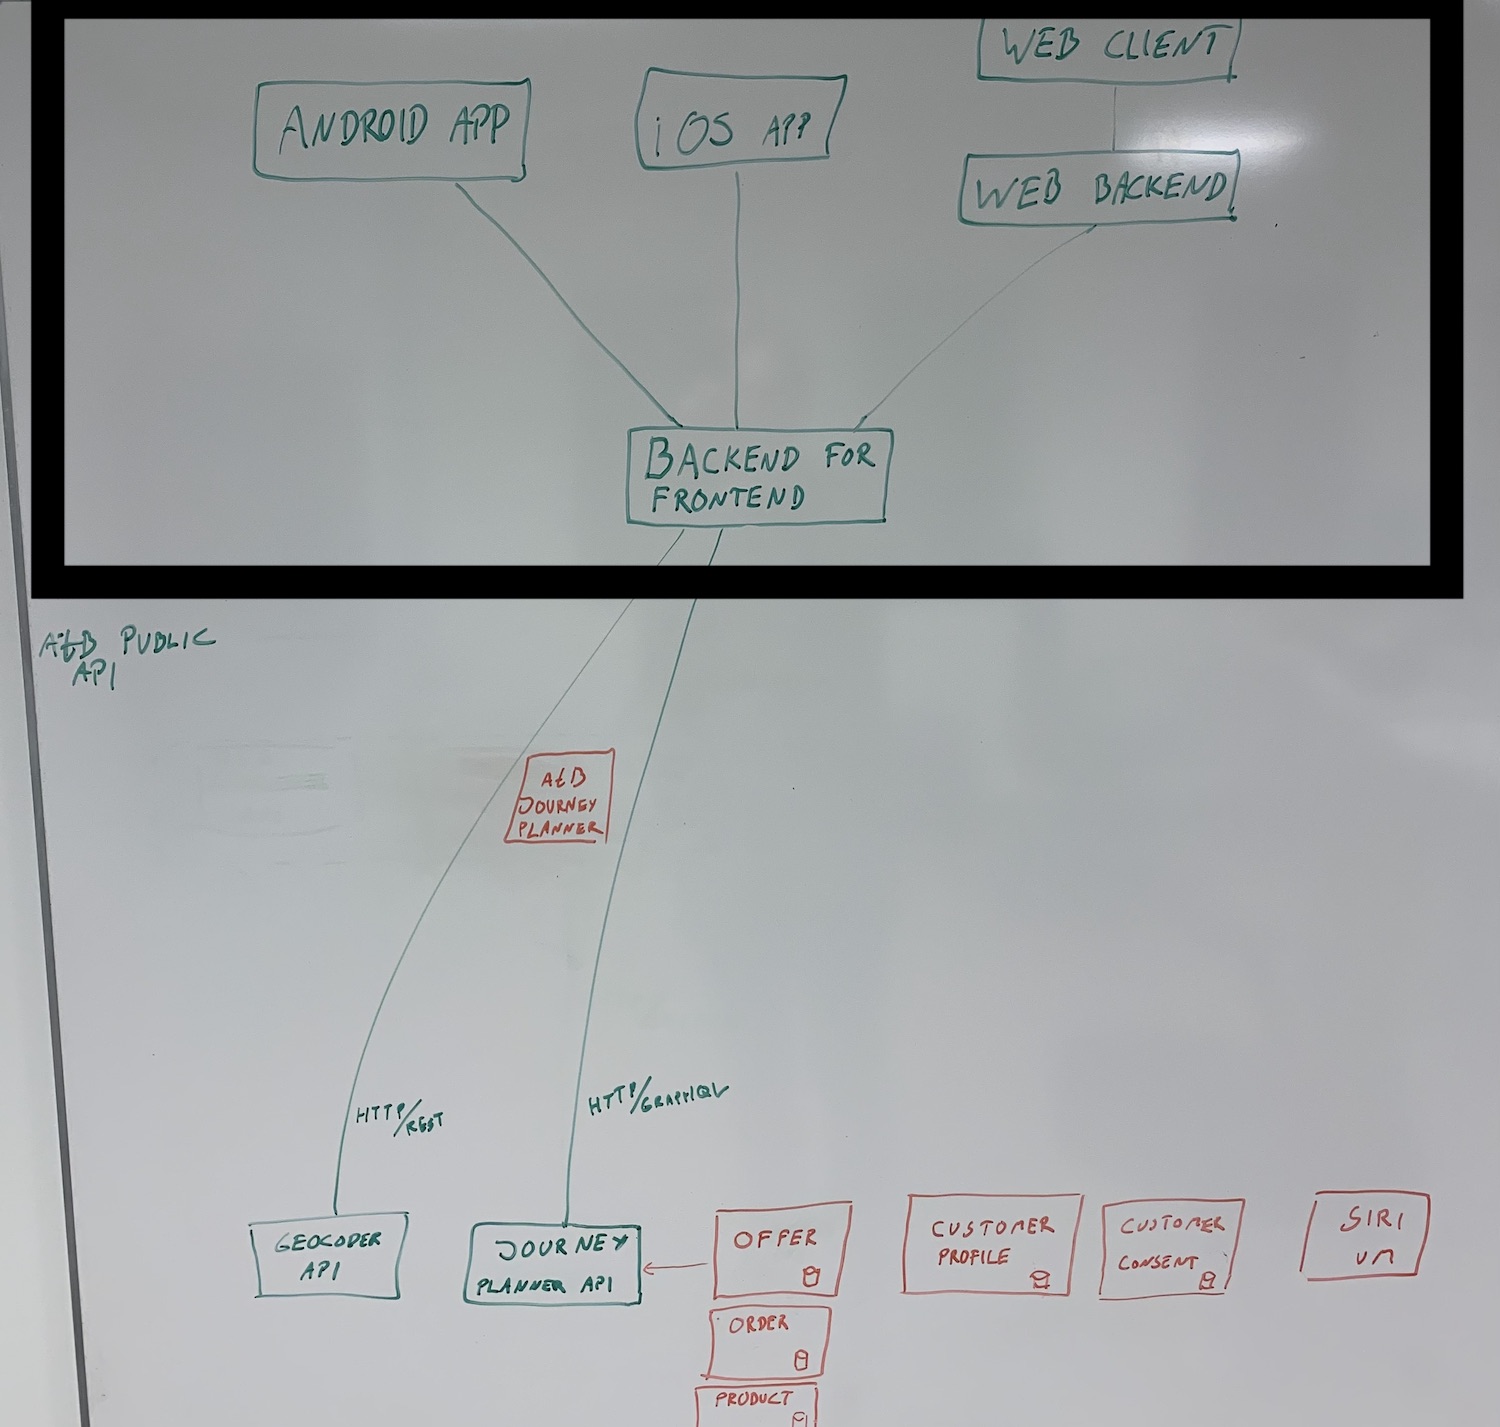 WEB CLIENT
ANDROID APP
iOS APP
WEB BACKEND
BACKEND FOR
FRONTEND
AtB PUBLIC
API
AtB
JOURNEY
PLANNER
HTTP/REST
HTTP/GRAPHQL
GEOCODER
API
JOURNEY
PLANNER API
OFFER
CUSTOMER
PROFILE
CUSTOMER
CONSENT
SIRI
VM
ORDER
PRODUCT